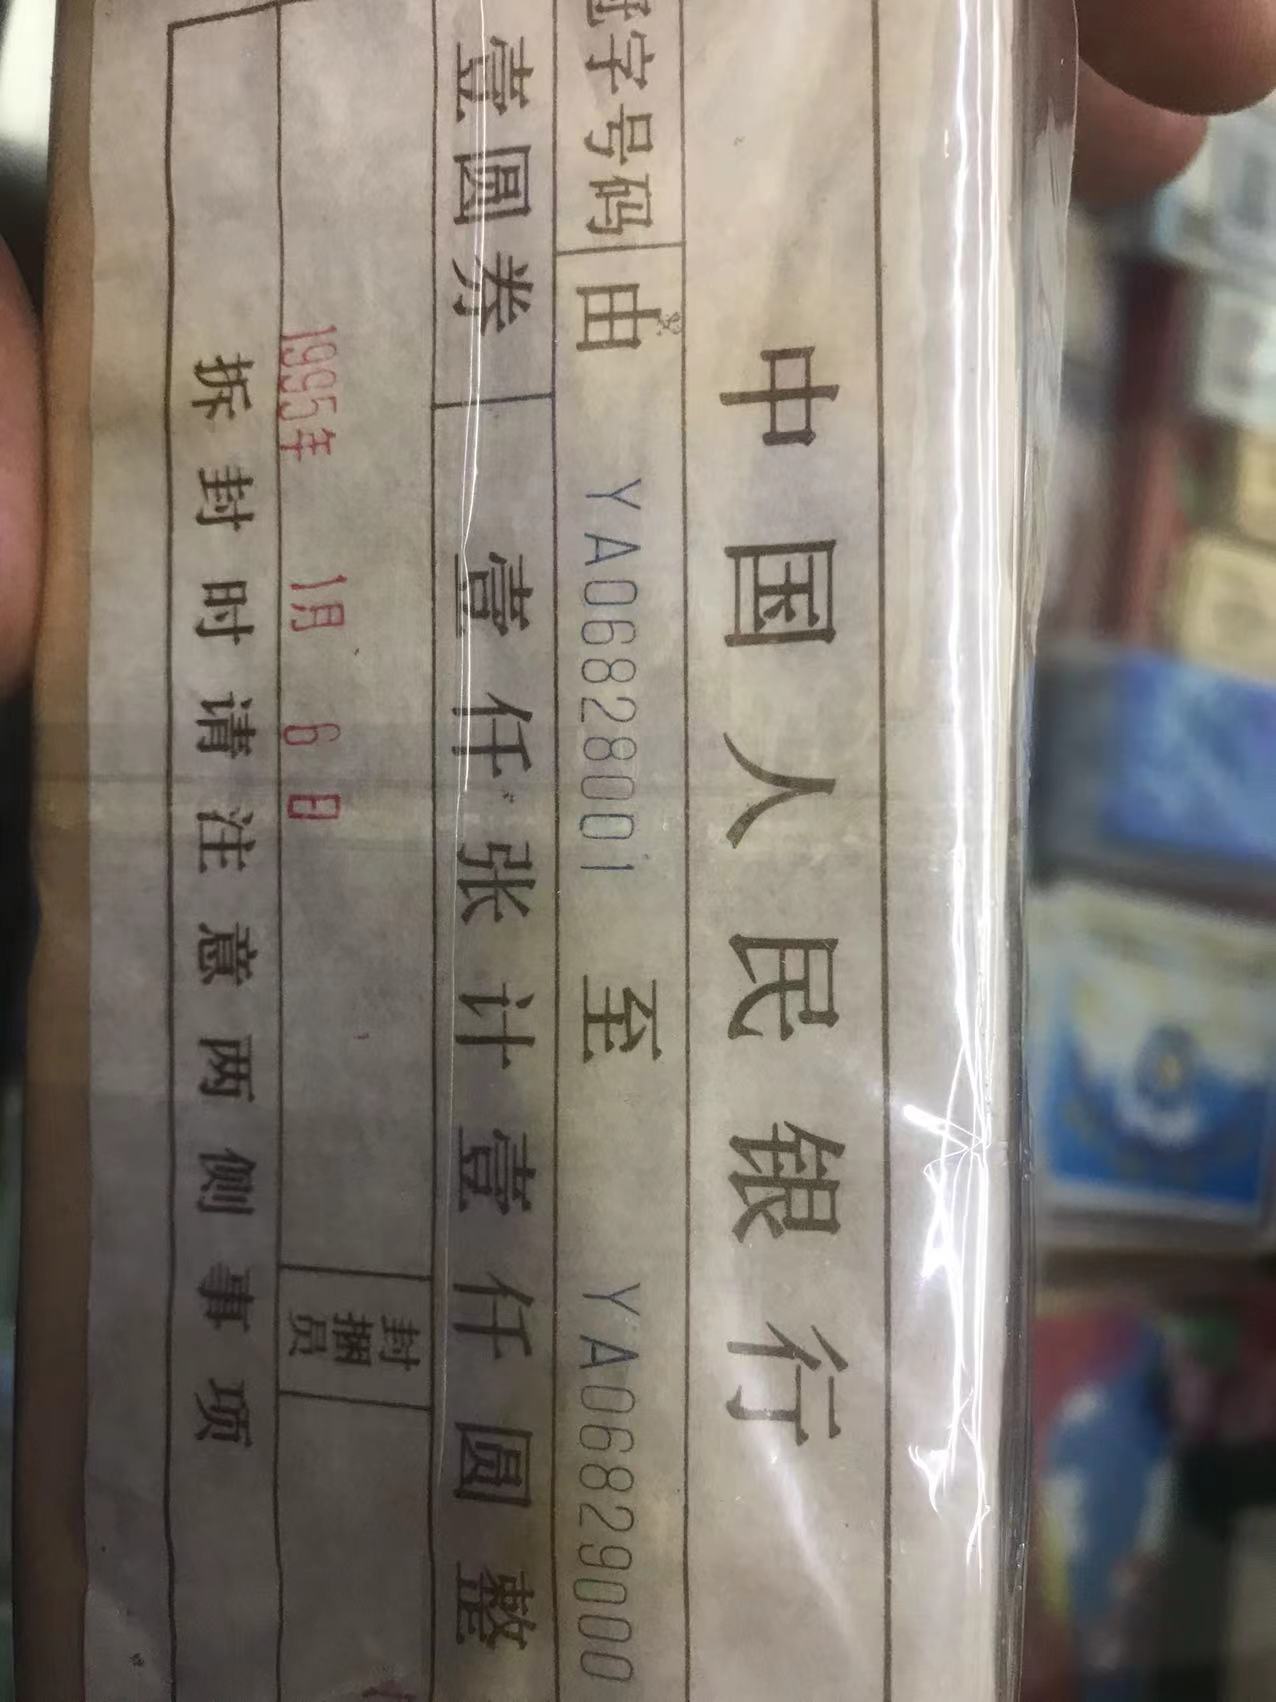 中国人民银行
冠字号码 由 YA06828001 至 YA06829000
壹圆券 壹仟张计壹仟圆整
1995年 1月 6日 封捆员
拆封时请注意两侧事项